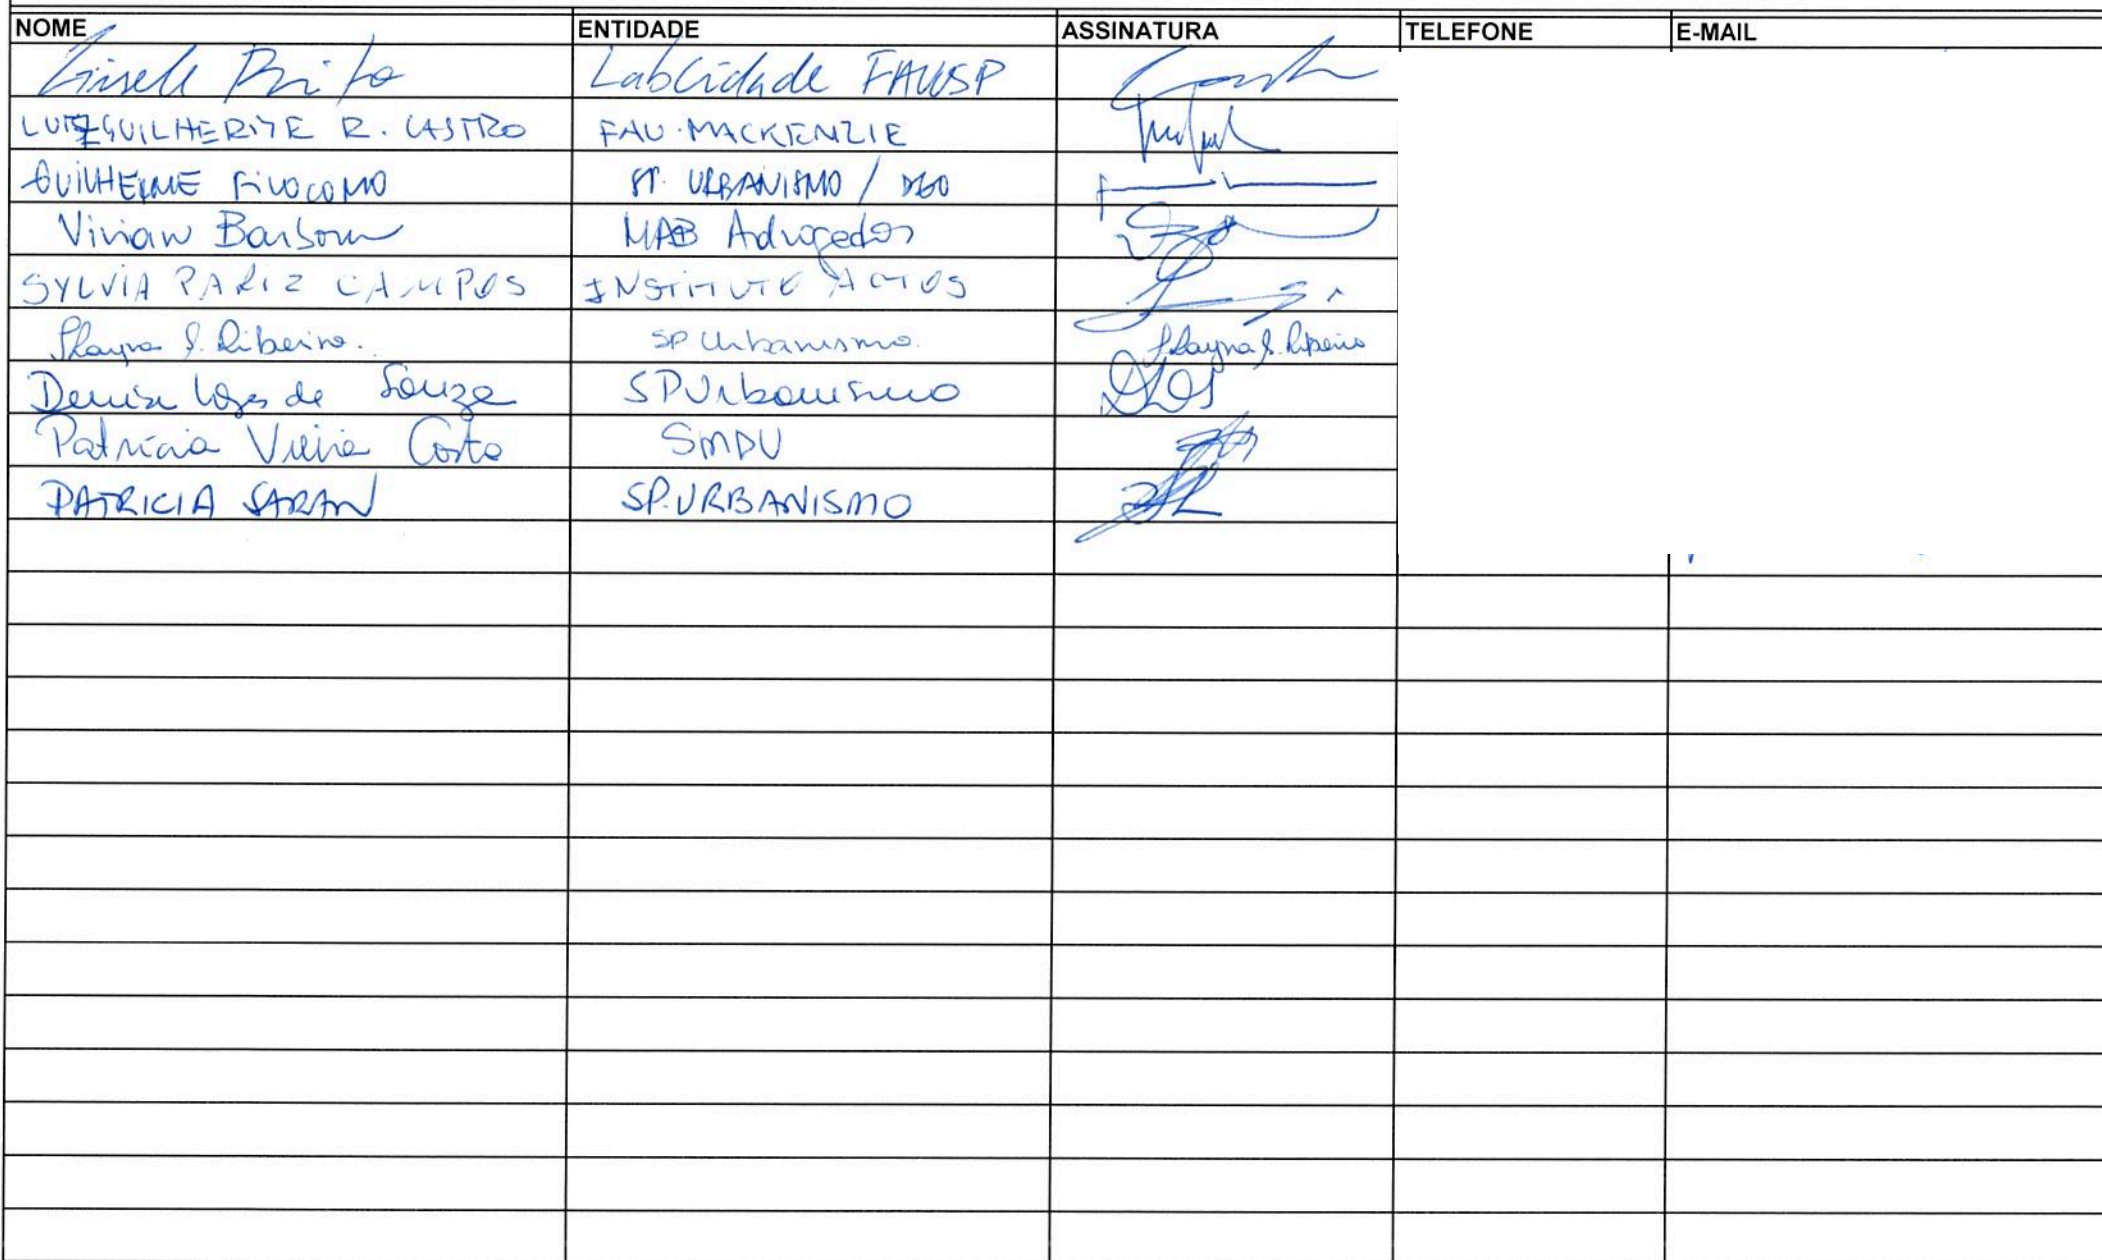 NOME ENTIDADE ASSINATURA TELEFONE E-MAIL
Gisele Brito LabCidade FAUUSP
LUIZ GUILHERME R. CASTRO FAU-MACKENZIE
GUILHERME FILOCOMO SP. URBANISMO / DGO
Vivian Barbour MAB Advogados
SYLVIA PARIZ CAMPOS INSTITUTO ACTUS
S. Ribeiro. SP Urbanismo. S. Ribeiro
Denise Lopes de Souza SPUrbanismo DLOS
Patrícia Vieira Costa SMDU
PATRICIA SARAN SP.URBANISMO